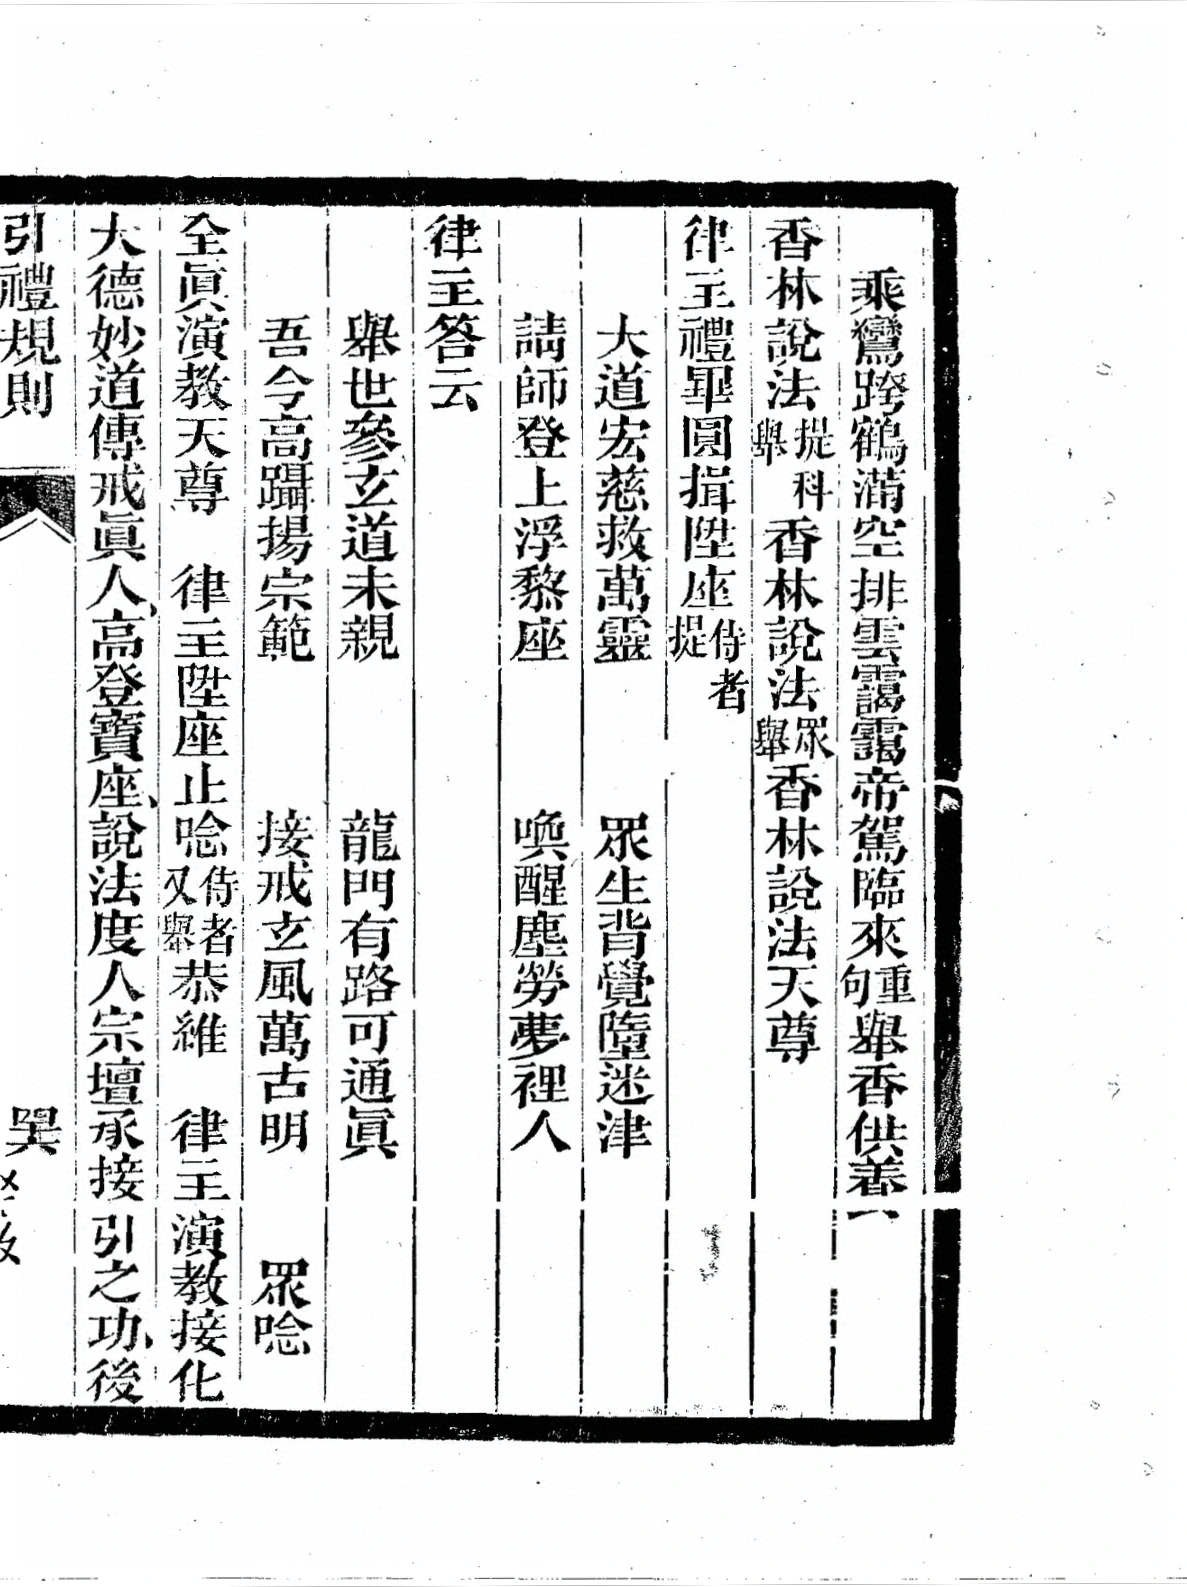 乘鸞跨鶴滿空排雲靄靄帝駕臨來重句舉香供養
香林說法提科舉香林說法眾舉香林說法天尊
律主禮畢圓揖陞座侍者提
大道宏慈救萬靈　眾生背覺墮迷津
請師登上浮黎座　喚醒塵勞夢裡人
律主答云
舉世參玄道未親　龍門有路可通眞
吾今高躡揚宗範　接戒玄風萬古明　眾唸
全眞演教天尊　律主陞座止唸侍者又舉恭維　律主演教接化
大德妙道傳戒眞人高登寶座說法度人宗壇承接引之功後
引禮規則